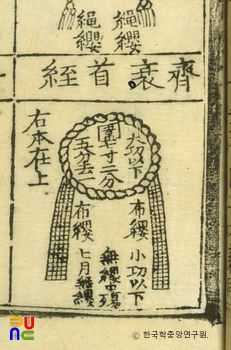 繩纓
繩纓
齊衰首絰
大功以下
圍七寸二分
五分去一
布纓
小功以下
無纓中殤
七月無纓
布纓
右本在上
© 한국학중앙연구원.